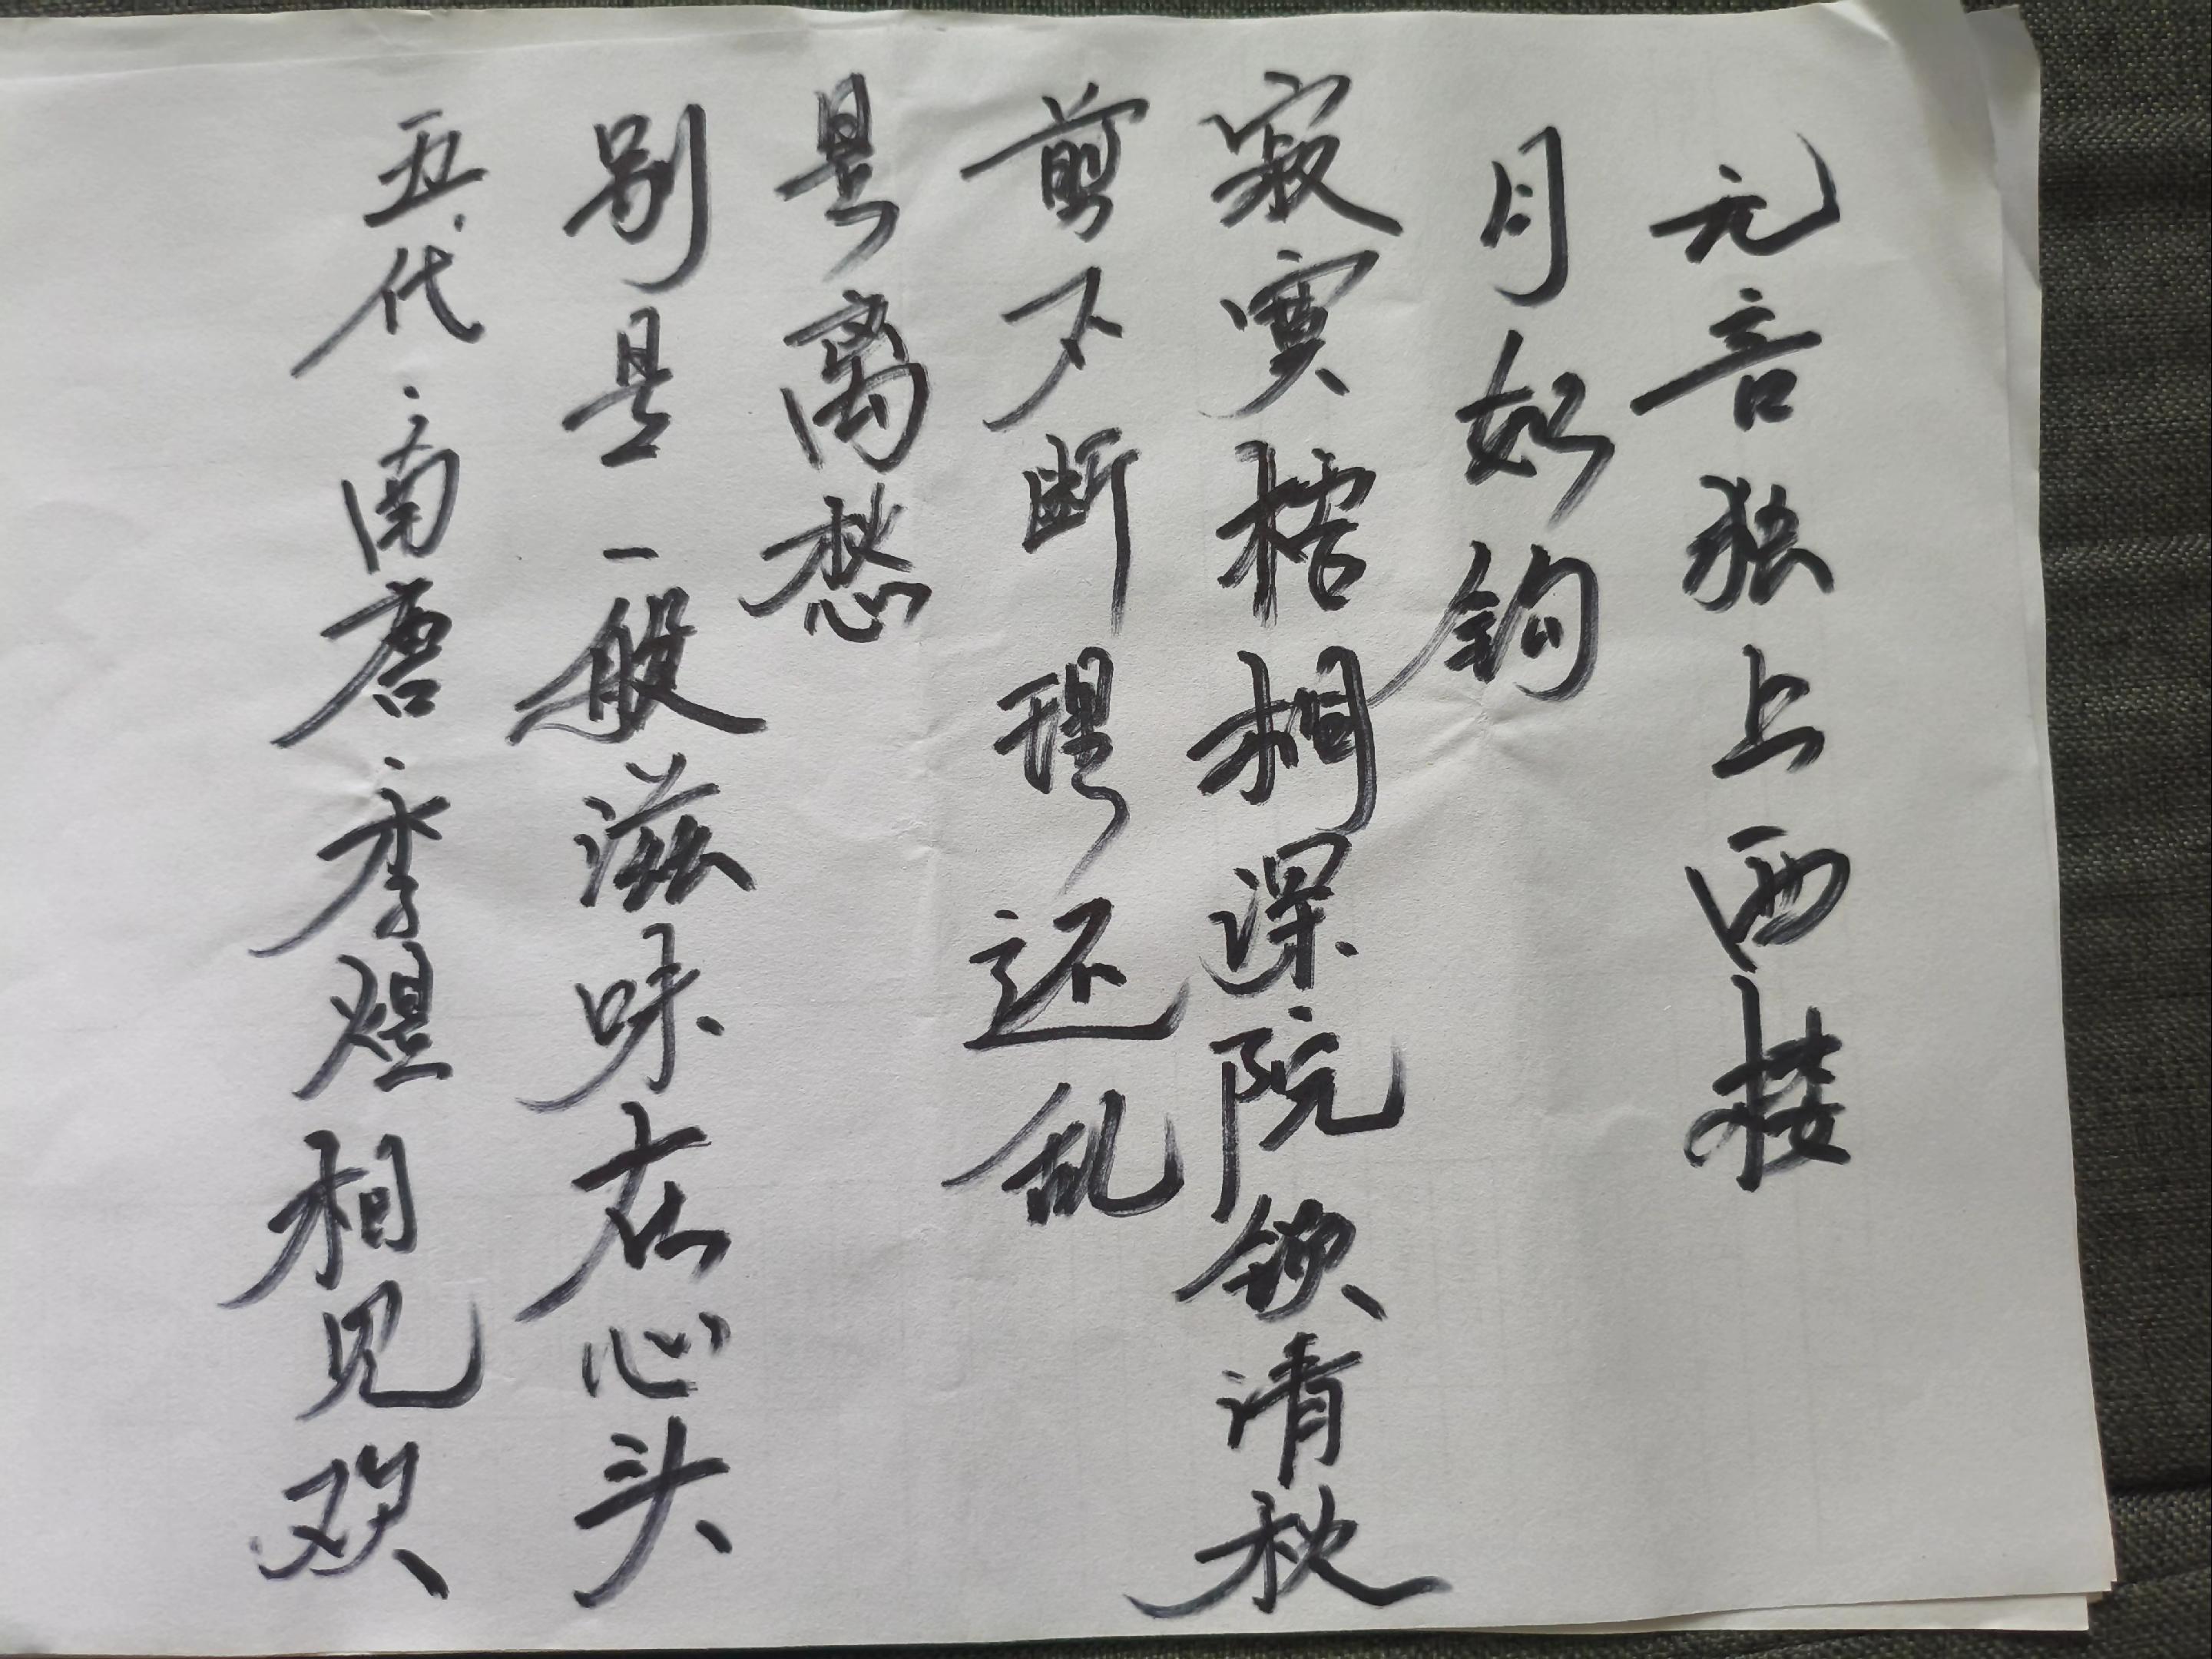 元言独上西楼
月如钩
寂寞梧桐深院锁清秋
剪不断理还乱
是离愁
别是一般滋味在心头
五代·南唐·李煜相见欢